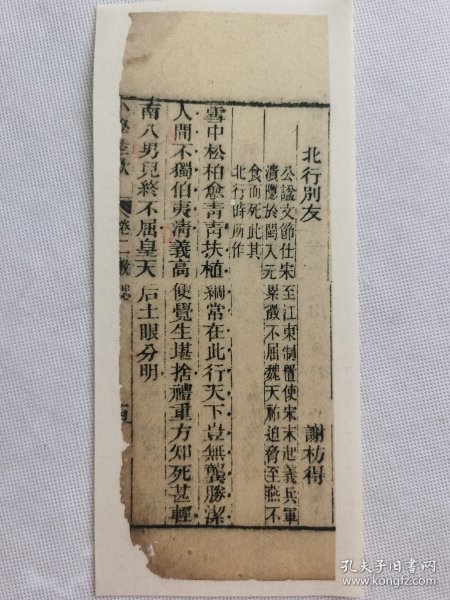 北行別友
謝枋得
公諡文節仕宋至江東制置使宋末起義兵軍
潰隱於閩入元累徵不屈魏天祐迫脅至燕不
食而死此其
北行時所作
雪中松柏愈青青扶植綱常在此行天下豈無龔勝潔
人間不獨伯夷淸義高便覺生堪捨禮重方知死甚輕
南八男兒終不屈皇天后土眼分明
卷二
孔夫子旧书网
book.kongfz.com